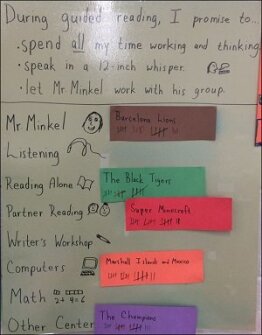 During guided reading, I promise to...
• spend all my time working and thinking
• speak in a 12-inch whisper.
• let Mr Minkel work with his group.
Mr Minkel
Barcelona Lions
Listening
Reading Alone
The Black Tigers
Partner Reading
Super Minecraft
Writer's Workshop
Computers
Marshall Islands and Mexico
Math
2+4=6
Other Center
The Champions